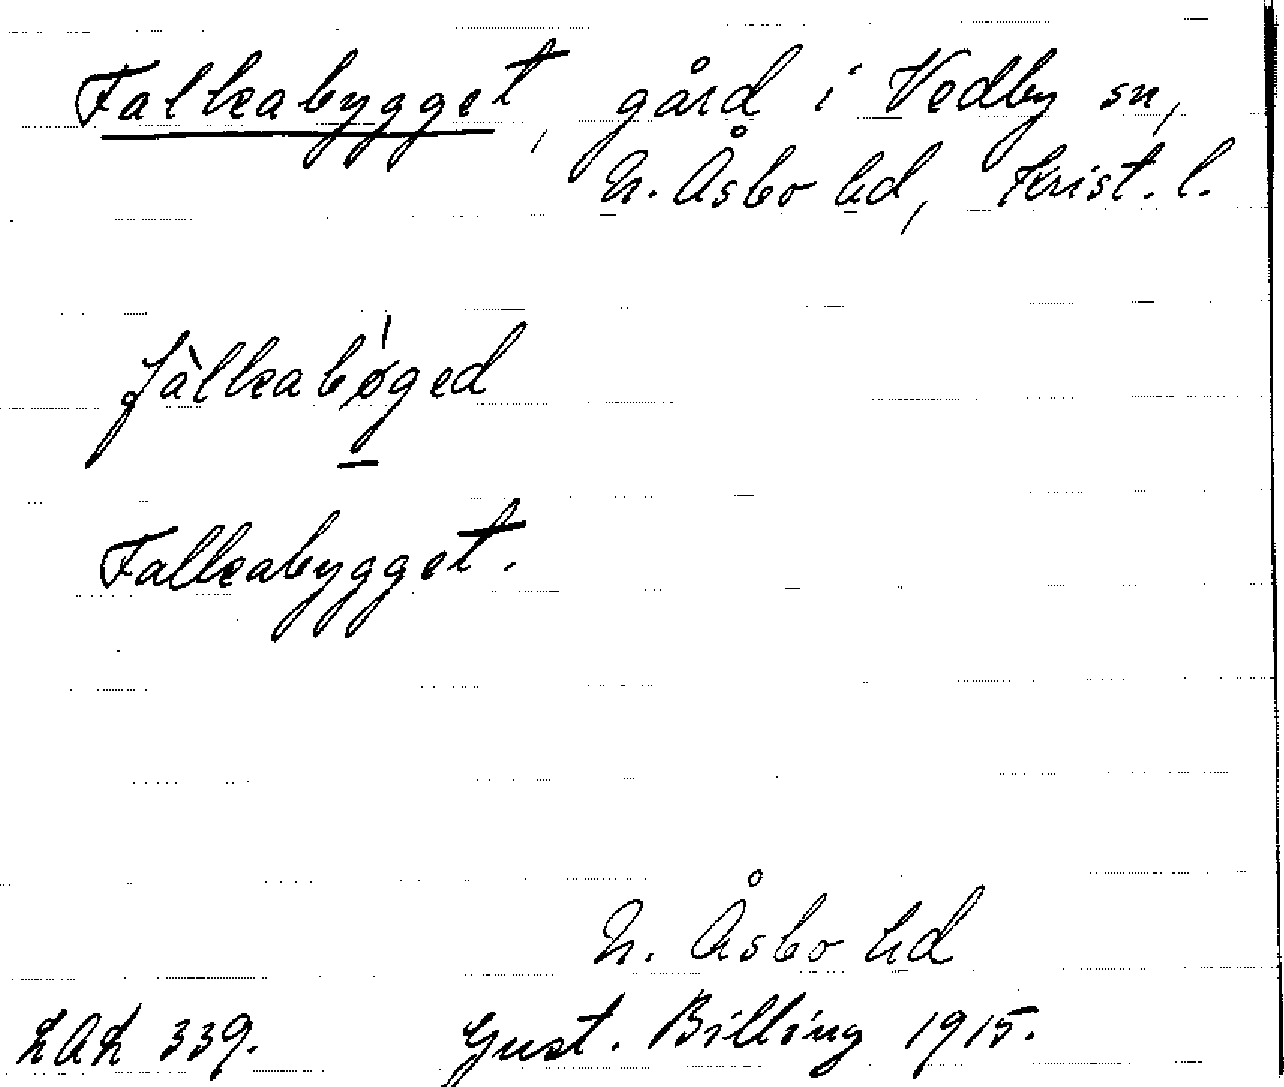 Falkabygget, gård i Vedby sn,
N. Åsbo hd, Krist. l.
fàlkabǿged
Falkabygget.
N. Åsbo hd
LAL 339. Gust. Billing 1915.